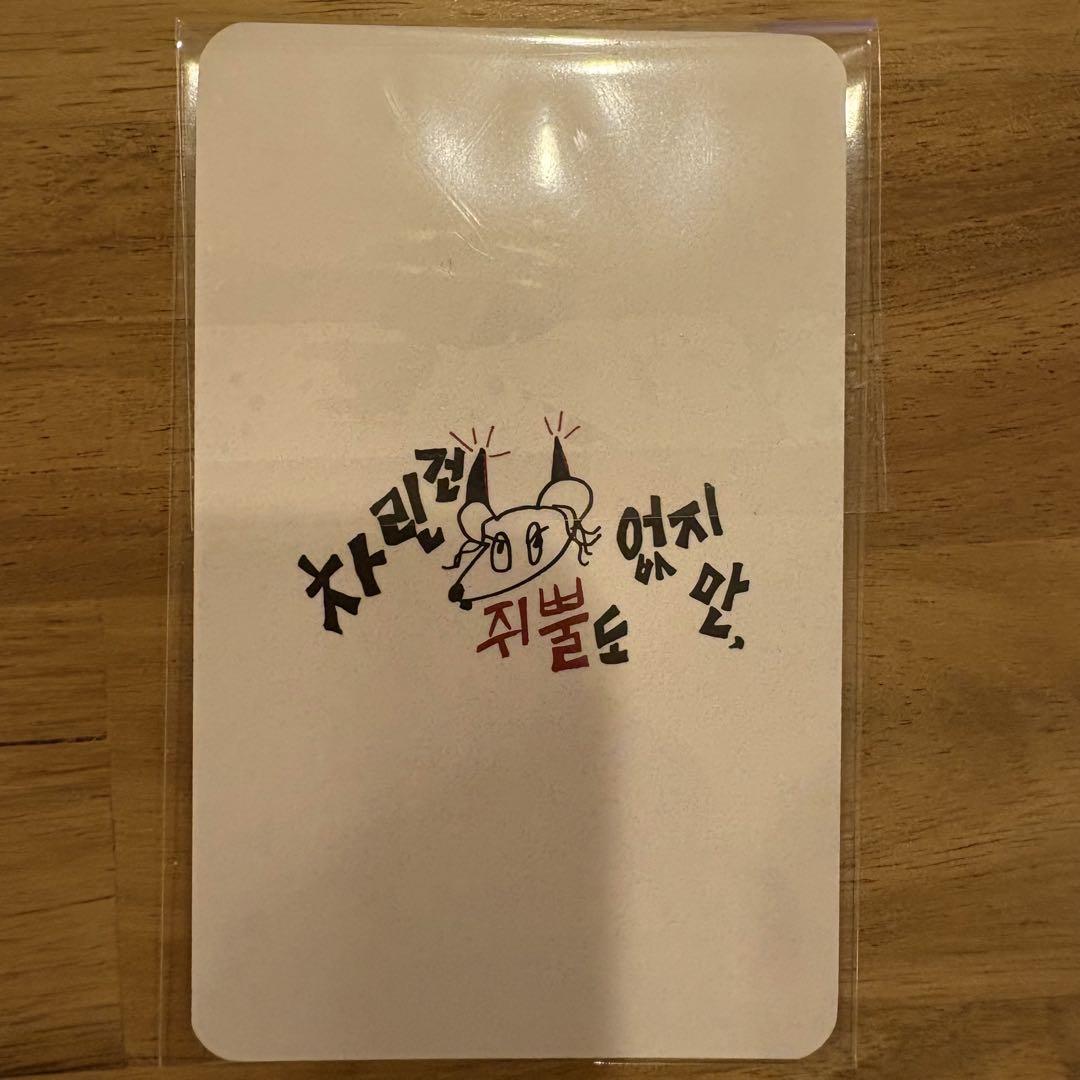 차린건
쥐뿔도
없지
만,